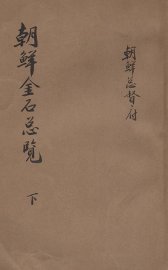 朝鮮総督府
朝鮮金石总覧
下